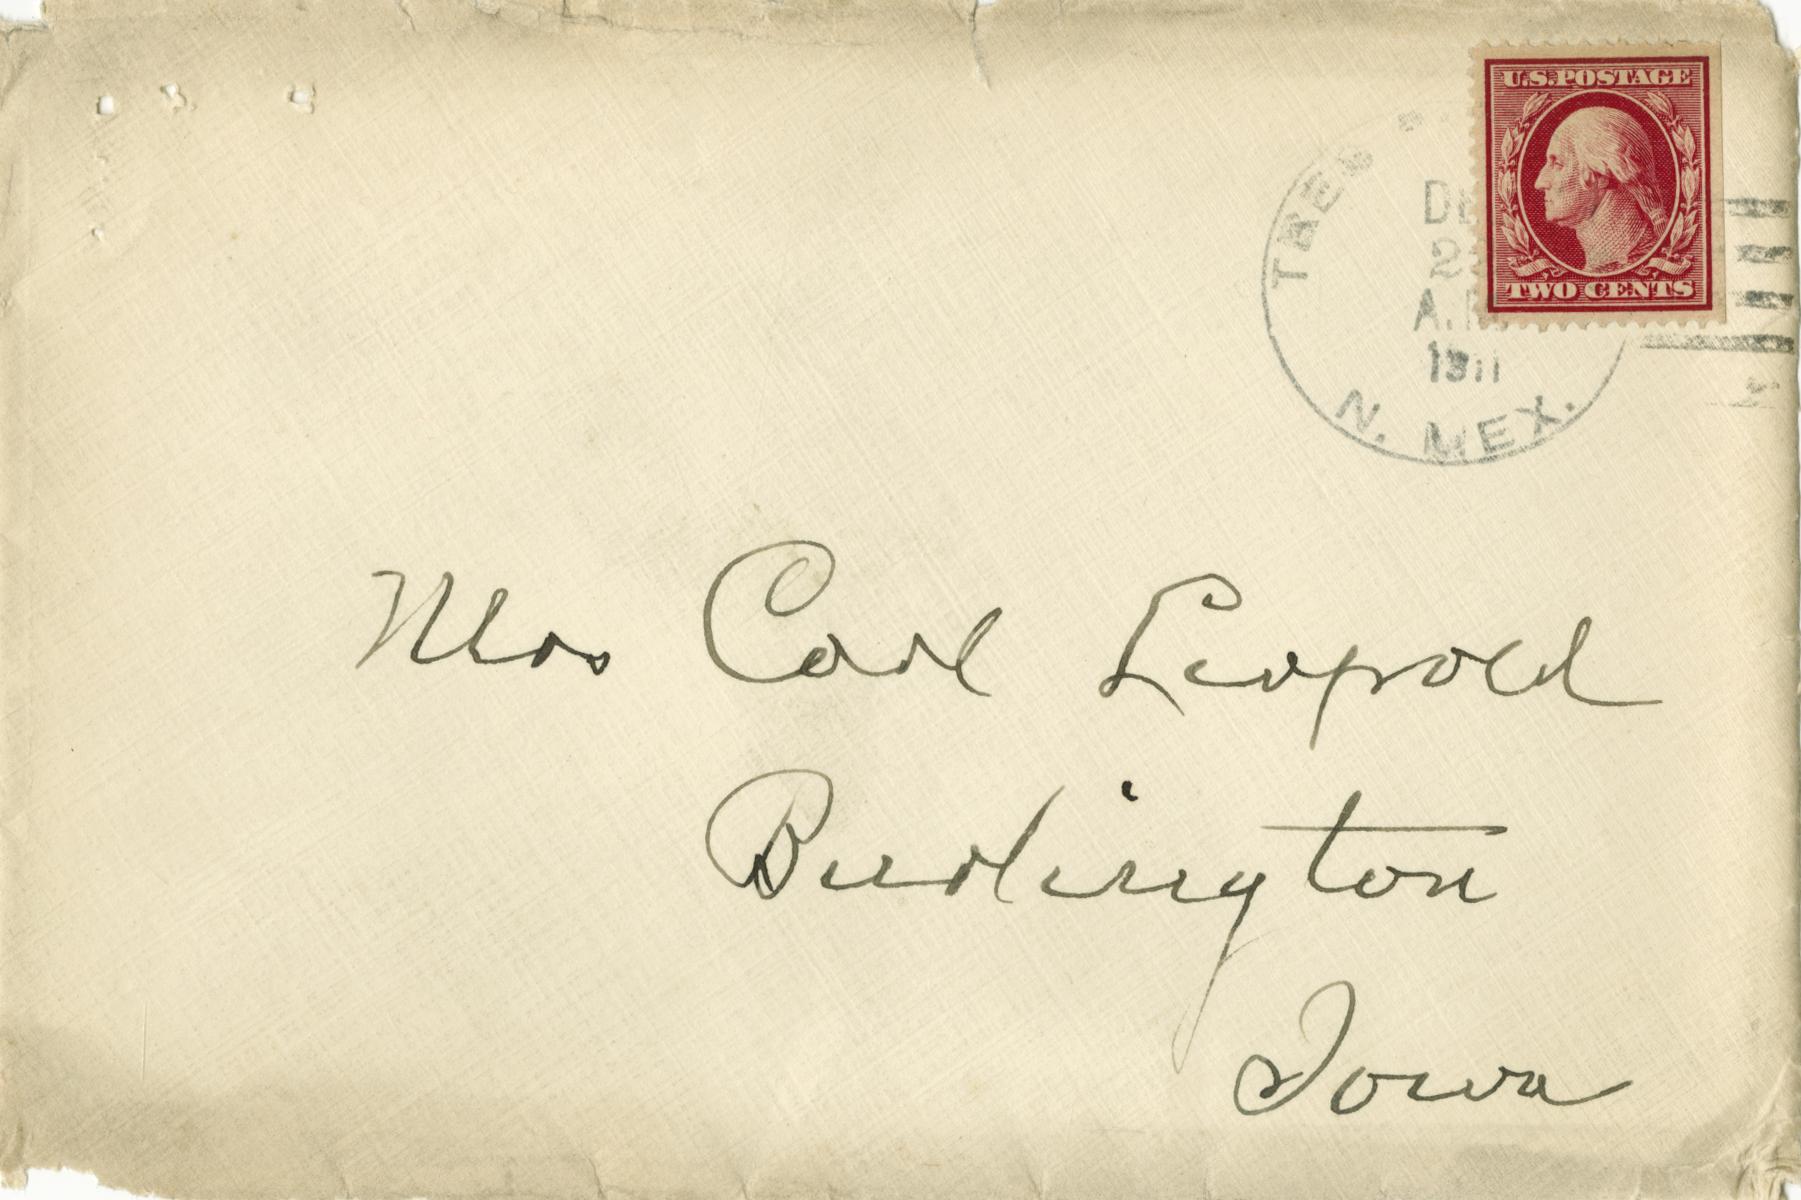 U.S. POSTAGE
TWO CENTS
TRES
A.
1911
N. MEX.
Mrs Carl Leopold
Burlington
Iowa